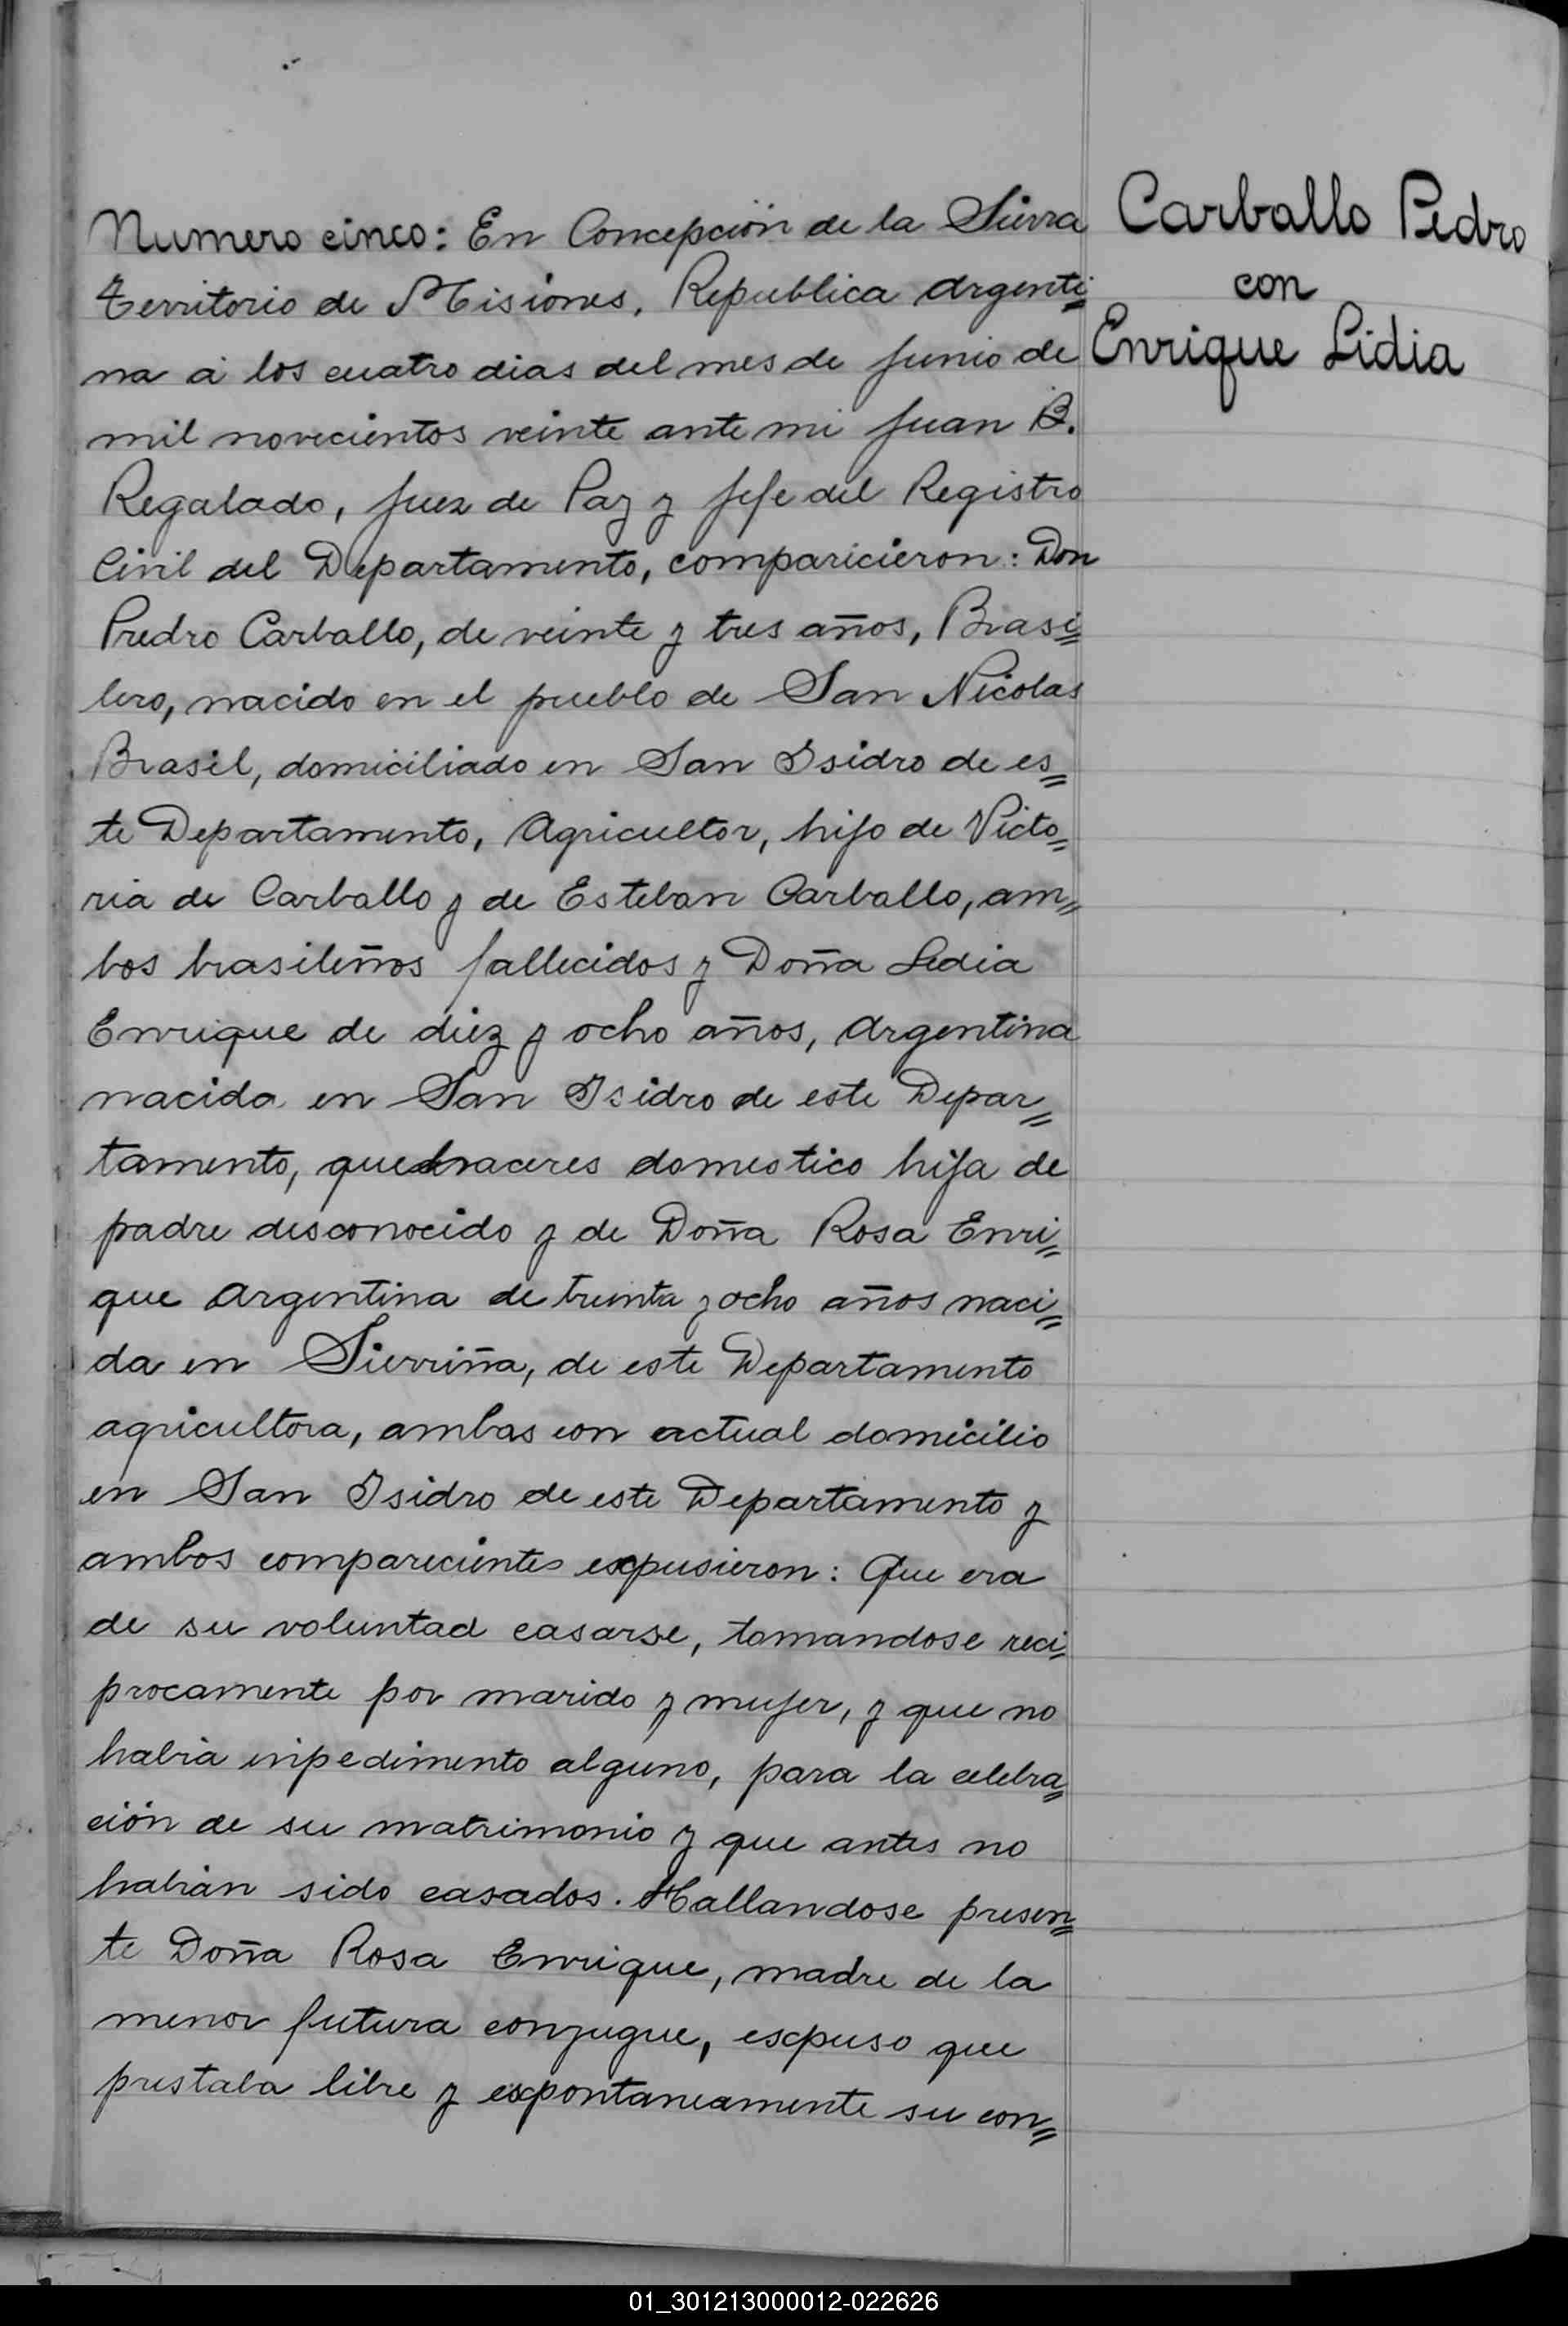 Numero cinco: En Concepción de la Sierra
Territorio de Misiones, Republica Argenti=
na á los cuatro dias del mes de Junio de
mil novecientos veinte ante mi Juan B.
Regalado, Juez de Paz y Jefe del Registro
Civil del Departamento, comparicieron: Don
Predro Carballo, de veinte y tres años, Brasi=
lero, nacido en el pueblo de San Nicolas
Brasil, domiciliado en San Isidro de es=
te Departamento, Agricultor, hijo de Victo=
ria de Carballo y de Esteban Carballo, am=
bos brasileños fallecidos y Doña Ledia
Enrique de diez y ocho años, Argentina
nacida en San Isidro de este Depar=
tamento, quehaceres domestico hija de
padre desconocido y de Doña Rosa Enri=
que Argentina de treinta y ocho años naci=
da en Sierriña, de este Departamento
agricultora, ambas con actual domicilio
en San Isidro de este Departamento y
ambos comparecientes expusieron: Que era
de su voluntad casarse, tomandose reci=
procamente por marido y mujer, y que no
habia inpedimento alguno, para la celebra=
ción de su matrimonio y que antes no
habián sido casados. Hallandose presen=
te Doña Rosa Enrique, madre de la
menor futura conyugue, expuso que
prestaba libre y expontaneamente su con=
Carballo Pedro
con
Enrique Lidia
01_301213000012-022626